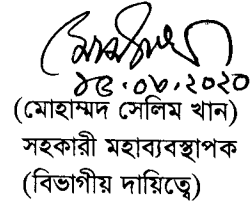 ১৫.০৬.২০২০
(মোহাম্মদ সেলিম খান)
সহকারী মহাব্যবস্থাপক
(বিভাগীয় দায়িত্বে)